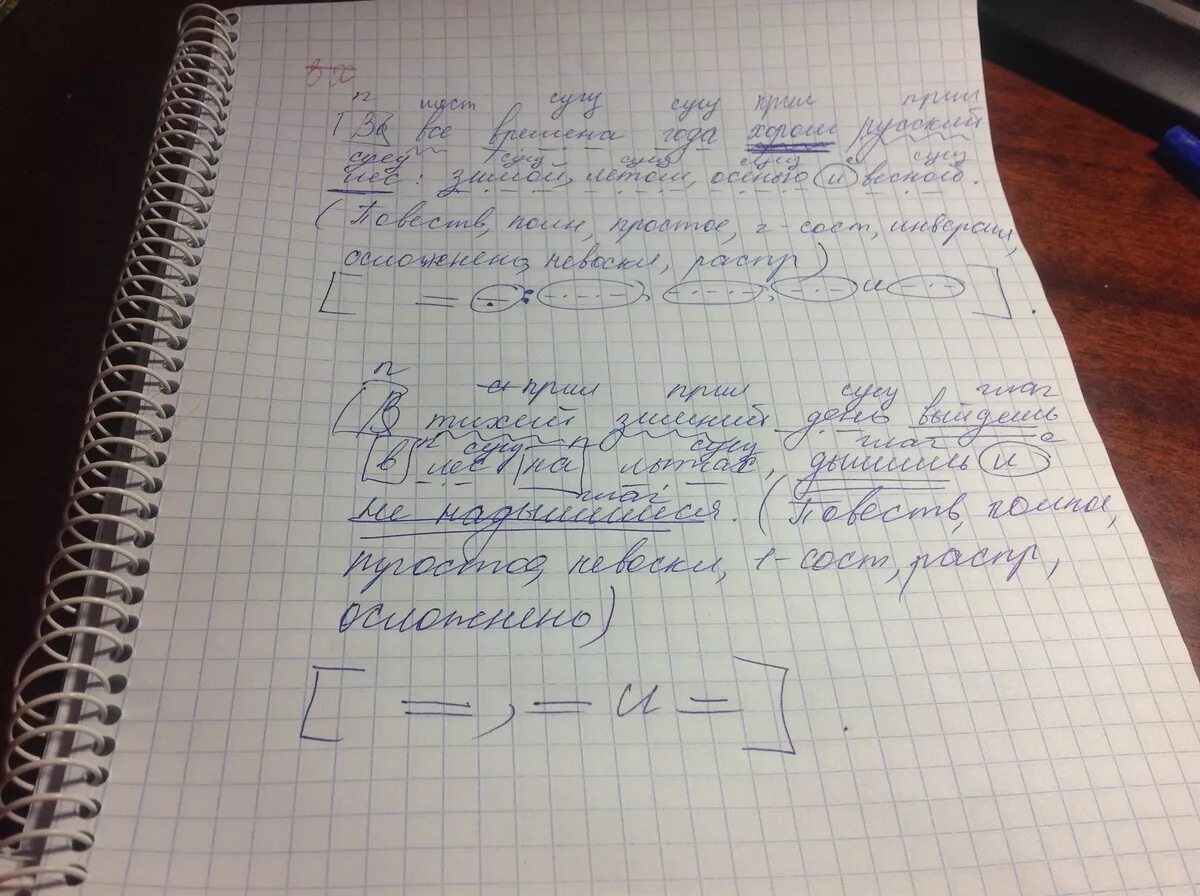 п мест сущ сущ прил прил
Во все времена года хорош русский
сущ сущ сущ сущ с сущ
лес: зимой, летом, осенью и весной.
(Повеств, полн, простое, 2-сост, инверсия,
осложнено, невоскл, распр)
[ = : , , и ].
п прил прил сущ глаг
В тихий зимний день выйдешь
п сущ п сущ глаг с
в лес на лыжах, дышишь и
глаг
не надышишься. (Повеств, полное,
простое, невоскл, 1-сост, распр,
осложнено)
[ =, = и = ].